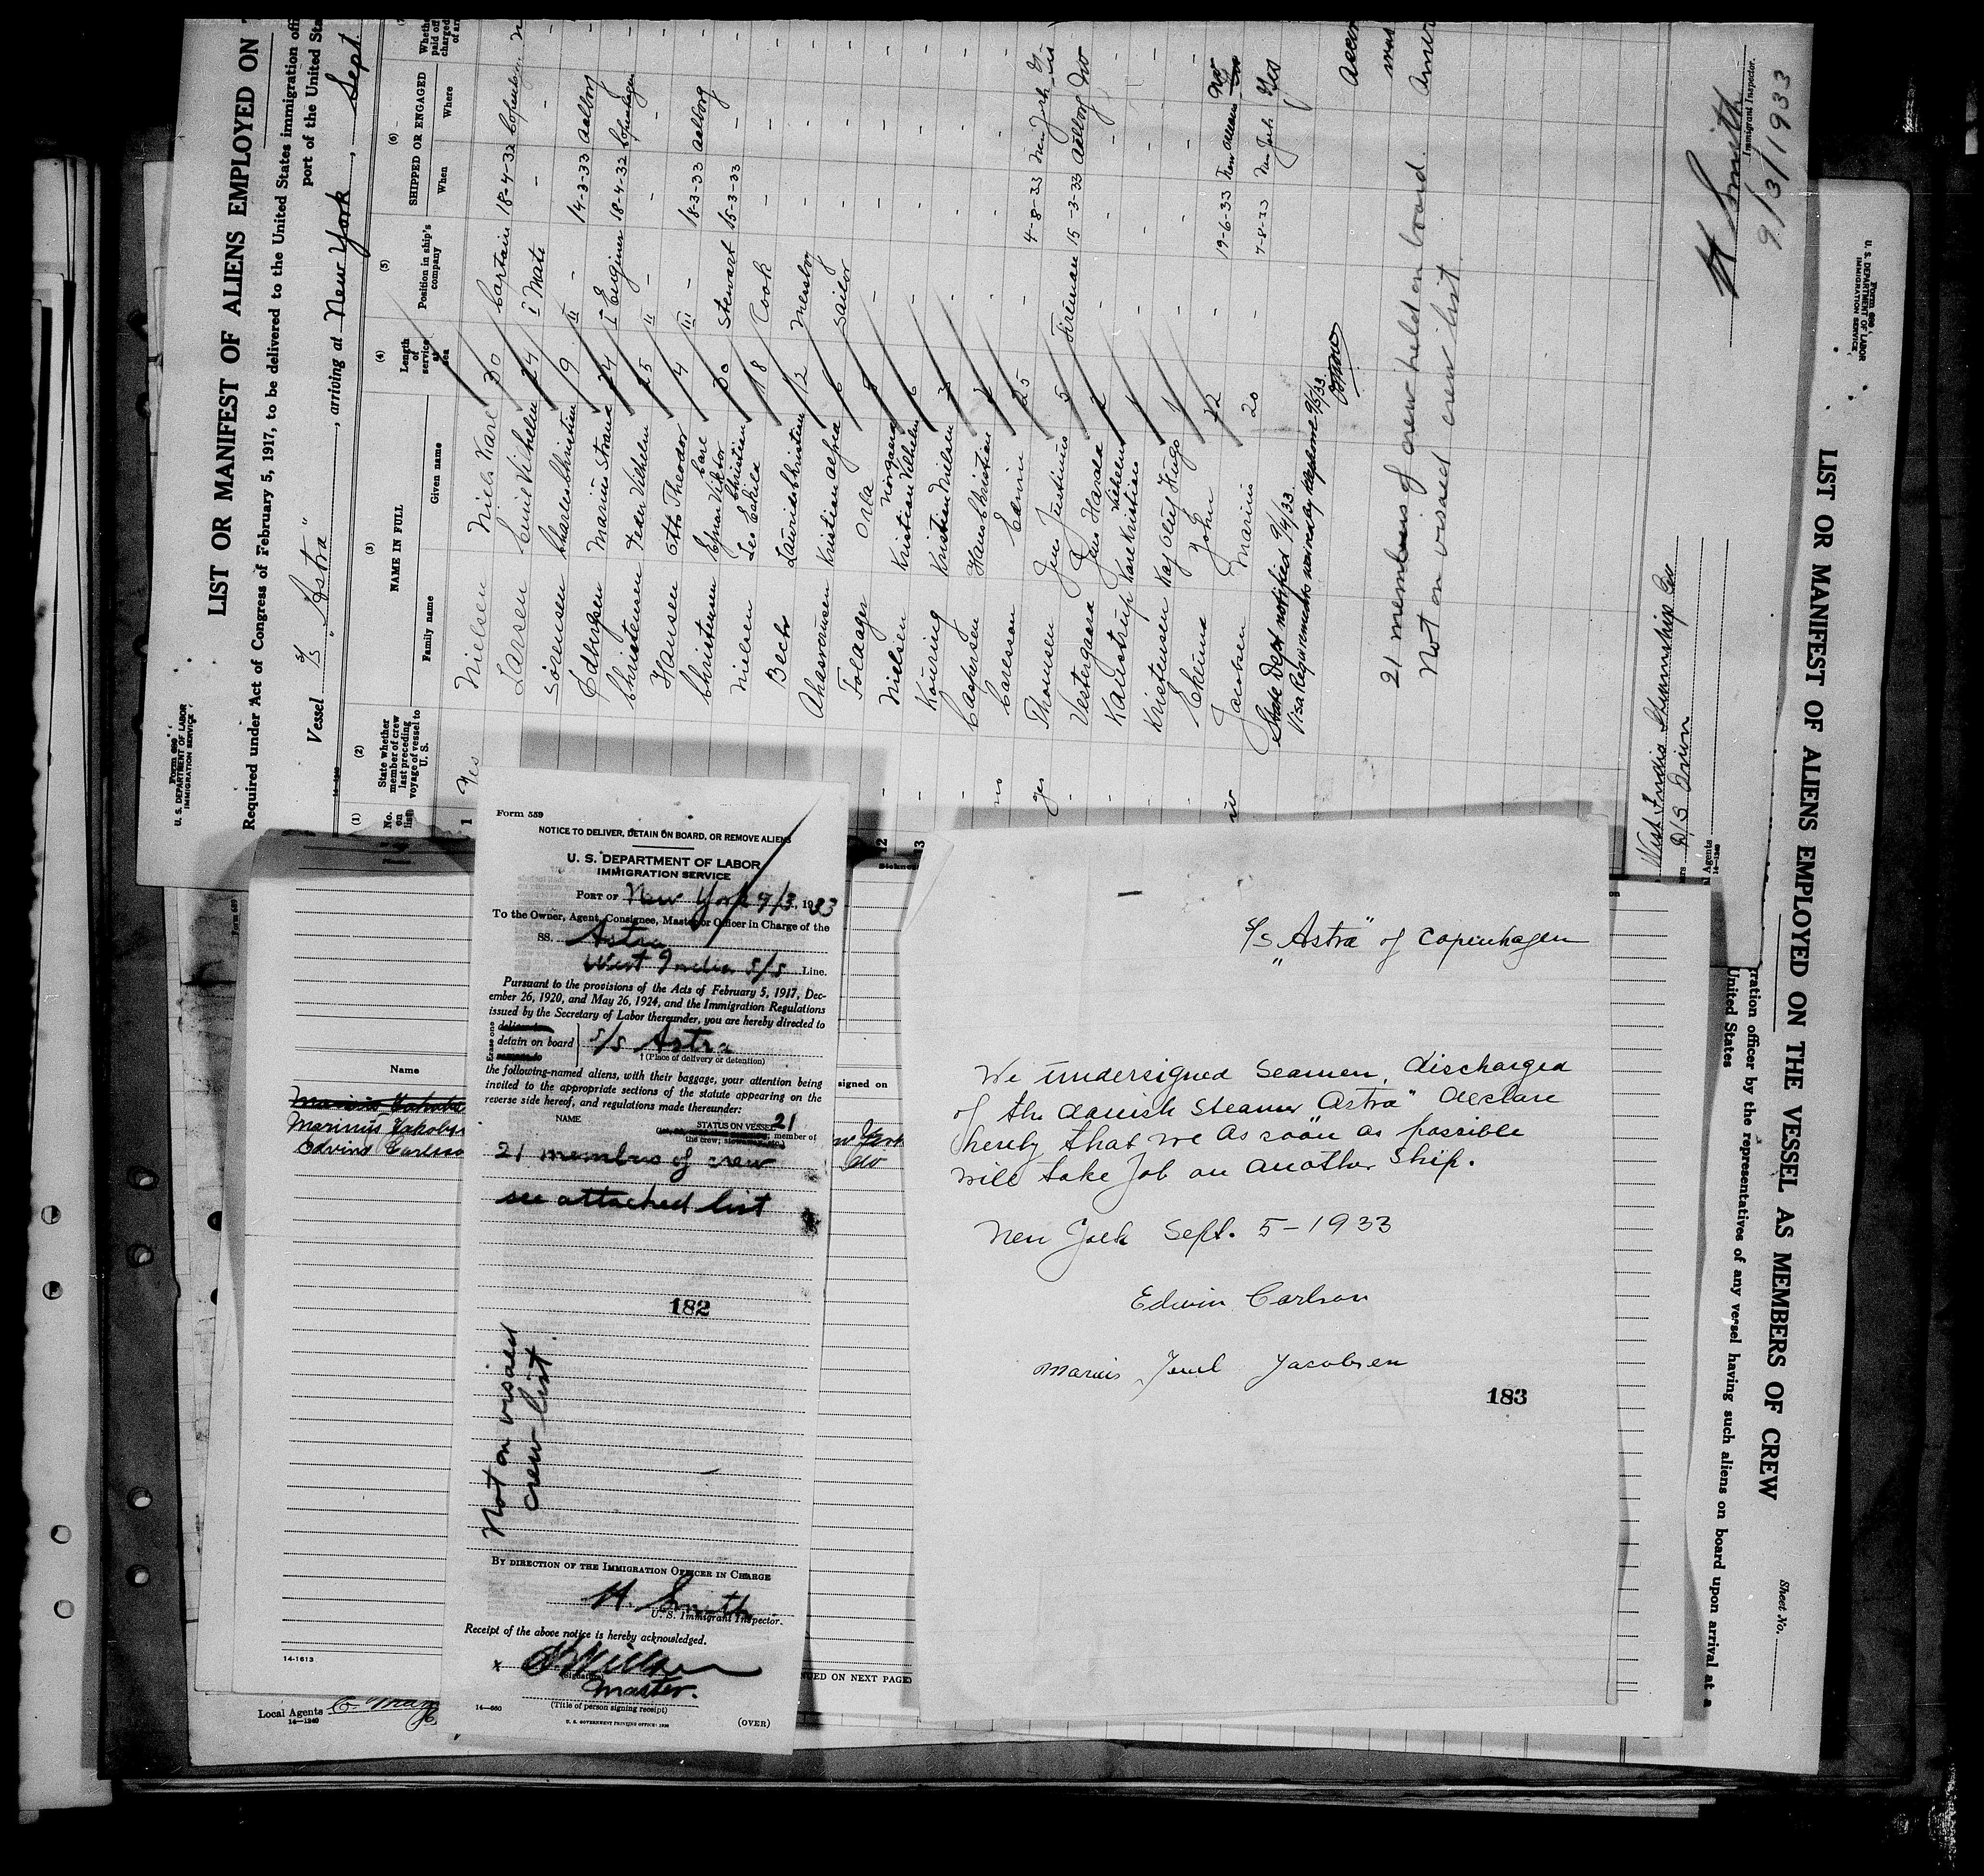 Form 689
U. S. DEPARTMENT OF LABOR
IMMIGRATION SERVICE
LIST OR MANIFEST OF ALIENS EMPLOYED ON
Required under Act of Congress of February 5, 1917, to be delivered to the United States immigration
port of the United
Vessel S/S "Astra", arriving at New York, Sept.
(1) (2) (3) (4) (5) (6)
No. on list
State whether member of crew last preceding voyage of vessel to U. S.
NAME IN FULL
Family name Given name
Length of service at sea
Position in ship's company
SHIPPED OR ENGAGED
When Where
1 Yes Nielsen Niels Kare 30 Captain 18-4-32 Copenhagen
Larsen Emil Vilhelm 24 I Mate - -
Sörensen Charles Christian 9 II - 14-3-33 Aalborg
Edbergsen Marius Strand 24 I Enginer 18-4-32 Copenhagen
Christensen Peder Vilhelm 25 II - - -
Hansen Otto Theodor 14 III - 18-3-33 Aalborg
Christensen Ejnar Viktor 20 Stewart 15-3-33 -
Nielsen Leo Christian 18 Cook - -
Bech Laurids Christian 12 Messboy - -
Ahasverusen Kristian Alfred 6 Sailor - -
Folaager Orla
12 Nielsen Kristian Vilhelm 6
13 Kouring Kristian Nielsen
Caspersen Hans Christian
no Carlsson Edwin 25 - 4-8-33 New York
yes Thomsen Jens Justinus 5 Fireman 15-3-33 Aalborg No
Vestergaard Jens Harald
Kaastrup Karl Kristian
Kristensen Kaj Oluf Hugo
John 22 - 19-6-33 New Orleans
Jacobsen Marius 20 - 4-8-33 New York Yes
State Dept notified 9/4/33.
Visa Requirements waived by telephone 9/5/33.
21 members of crew held on board.
Not on visaed crew list.
H Smith
Immigrant Inspector.
9/3/1933
West India Steamship Co
Agents
14-1240
Form 689
U. S. DEPARTMENT OF LABOR
IMMIGRATION SERVICE
LIST OR MANIFEST OF ALIENS EMPLOYED ON THE VESSEL AS MEMBERS OF CREW
ration officer by the representatives of any vessel having such aliens on board upon arrival at a
United States
Sheet No.
Name
Marinus Jakobs
Edvind Carlsso
signed on
w York
do
14-1613
Local Agents
14-1240
UED ON NEXT PAGE
Form 559
NOTICE TO DELIVER, DETAIN ON BOARD, OR REMOVE ALIENS
U. S. DEPARTMENT OF LABOR
IMMIGRATION SERVICE
PORT OF New York 9/3, 1933
To the Owner, Agent, Consignee, Master or Officer in Charge of the
SS. Astra
West India S/S Line.
Pursuant to the provisions of the Acts of February 5, 1917, Dec-
ember 26, 1920, and May 26, 1924, and the Immigration Regulations
issued by the Secretary of Labor thereunder, you are hereby directed to
Erase one
deliver to
detain on board
remove to
S/S Astra
† (Place of delivery or detention)
the following-named aliens, with their baggage, your attention being
invited to the appropriate sections of the statute appearing on the
reverse side hereof, and regulations made thereunder:
NAME STATUS ON VESSEL 21
member of the crew;
21 members of crew
see attached list
182
Not on visaed
crew list.
BY DIRECTION OF THE IMMIGRATION OFFICER IN CHARGE
H. Smith
U. S. Immigrant Inspector.
Receipt of the above notice is hereby acknowledged.
x
(Signature)
Master.
(Title of person signing receipt)
14-560
U. S. GOVERNMENT PRINTING OFFICE:
(OVER)
S/S "Astra" of Copenhagen
We undersigned seamen, discharged
of the danish steamer "Astra" declare
hereby that we as soon as possible
will take Job on another ship.
New York Sept. 5-1933
Edwin Carlson
Marius Juul Jacobsen
183